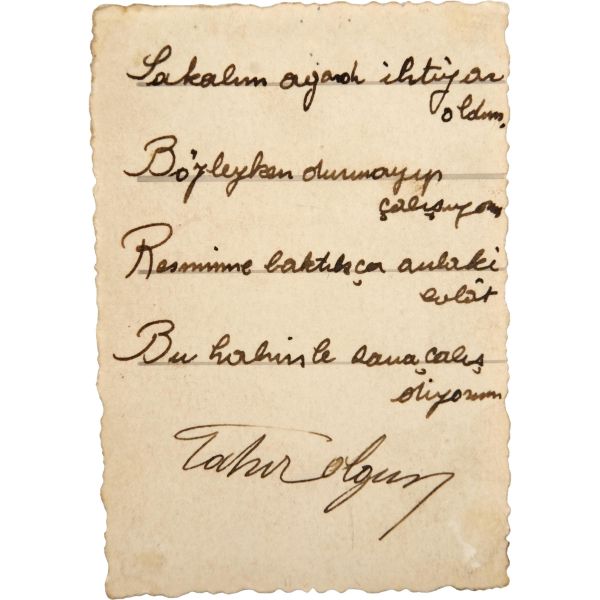 Sakalım ağardı ihtiyar
oldum,
Böyleyken durmayıp
çalışıyorum
Resmime baktıkça anlaki
evlât
Bu halimle sana çalış
diyorum
Tahir Olgun